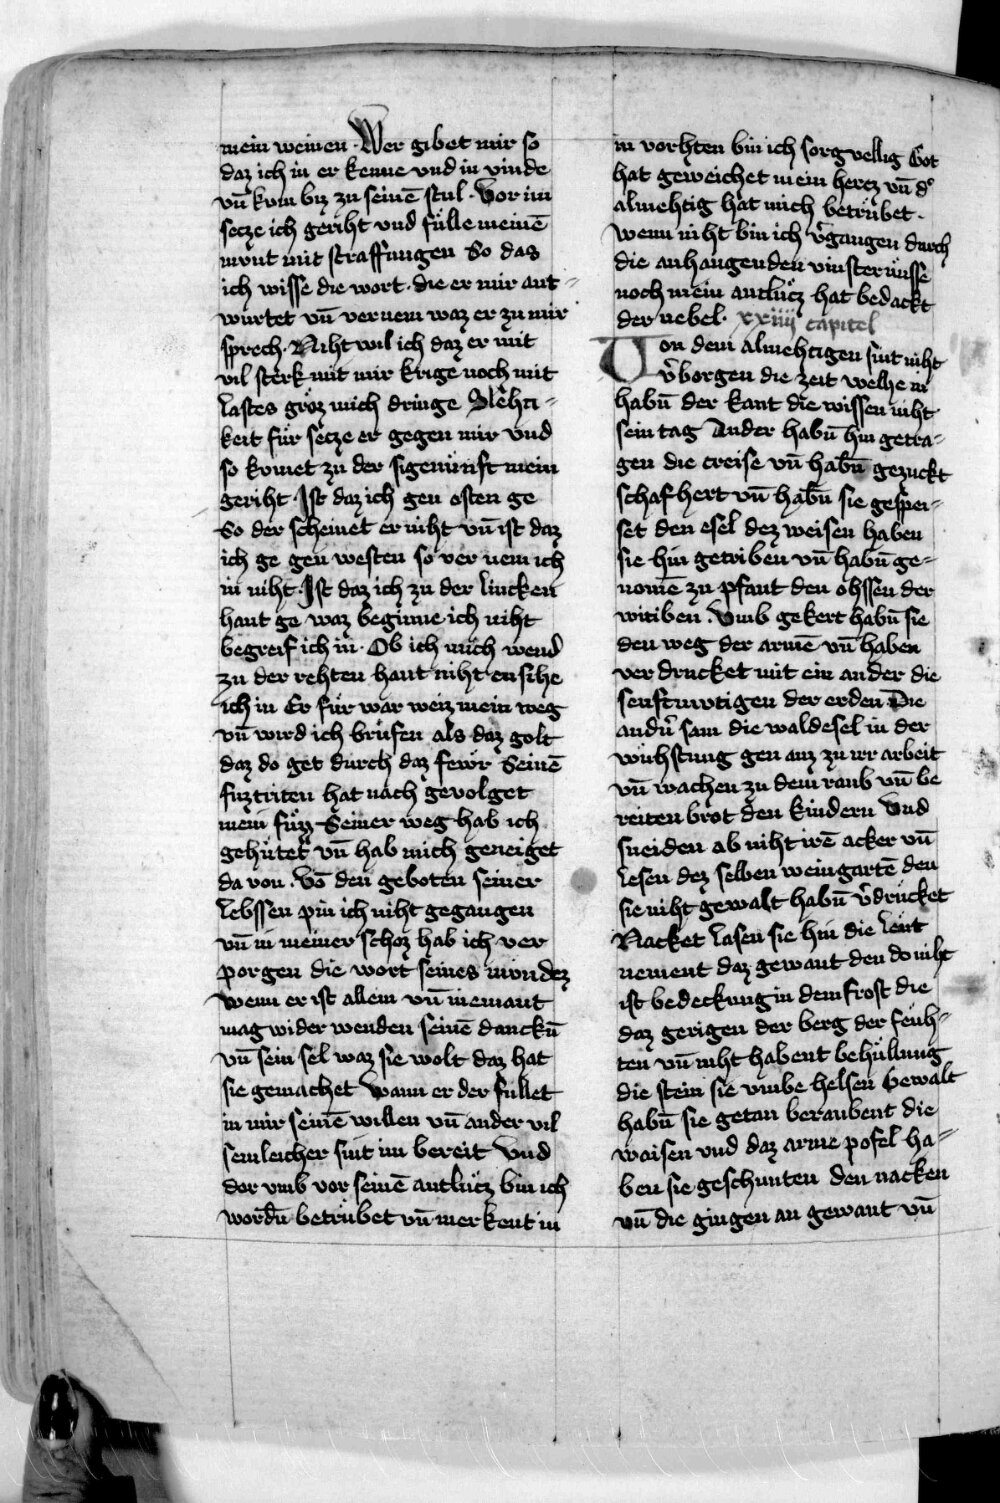 mein weinen · Wer gibet mir so
daz ich in er kenne vnd in vinde
vn̄ kvm biz zu seinē stul · Vor im
secze ich geriht vnd fülle meinē
mvnt mit straffungen So das
ich wisse die wort · die er mir ant-
würtet vn̄ vernem waz er zu mir
sprech · Niht wil ich daz er mit
vil sterk mit mir krige noch mit
lastes gröz mich dringe Slehti-
keit für secze er gegen mir vnd
so kvmet zu der sigenünft mein
geriht · Ist daz ich gen osten ge
So der scheinet er niht vn̄ ist daz
ich ge gen westen so ver nem ich
in niht · Ist daz ich zu der lincken
hant ge waz beginne ich niht
begreif ich in · Ob ich mich wend
zu der rehten hant niht ensihe
ich in Er für war weiz mein weg
vn̄ wird ich brüfen als daz golt
daz do get durch daz fewr Seinē
fuztriten hat nach gevolget
mein füz Seiner weg hab ich
gehütet vn̄ hab mich geneiget
da von · Vō den geboten seiner
lebssen pin ich niht gegangen
vn̄ in meiner schoz hab ich ver
porgen die wort seines mvndez
Wenn er ist allein vn̄ niemant
mag wider wenden seinē danckn̄
vn̄ sein sel waz sie wolt daz hat
sie gemachet Wann er der füllet
in mir seinē willen vn̄ ander vil
semleicher sint im bereit Vnd
dor vmb vor seinē antlücz bin ich
wordn̄ betrübet vn̄ merkent in
in vorhten bin ich sorgvellig Got
hat geweichet mein hercz vn̄ d᾽
almehtig hat mich betrübet ·
Wenn niht bin ich v᾽gangen durch
die anhangenden vinsternüsse
noch mein antlücz hat bedackt
der nebel · xxiiij capitel
Von dem almehtigen sint niht
v᾽borgen die zeit welhe in
habn̄ der kant die wissen niht
sein tag Ander habn̄ hin getra-
gen die creise vn̄ habn̄ gezuckt
schafhert vn̄ habn̄ sie gespei-
set den esel dez weisen haben
sie hin getriben vn̄ habn̄ ge-
nomē zu pfant den ohssen der
witiben · Vmb gekert habn̄ sie
den weg der armē vn̄ haben
ver drucket mit ein ander die
senftmvtigen der erden Die
andn᾽ sam die waldesel in der
wuhstung gen auz zu irr arbeit
vn̄ wachen zu dem raub vn̄ be
reiten brot den kindern Vnd
sneiden ab niht irē acker vn̄
lesen dez selben weingartē den
sie niht gewalt habn̄ v᾽drücket
Nacket lasen sie hin die leut
nement daz gewant den do niht
ist bedeckung in dem frost die
daz gerigen der berg der feuh-
ten vn̄ niht habent behüllung
die stein sie vmbe helsen Gewalt
habn̄ sie getan beraubent die
waisen vnd daz arme pofel ha-
ben sie geschunten den nacken
vn̄ die gingen an gewant vn̄